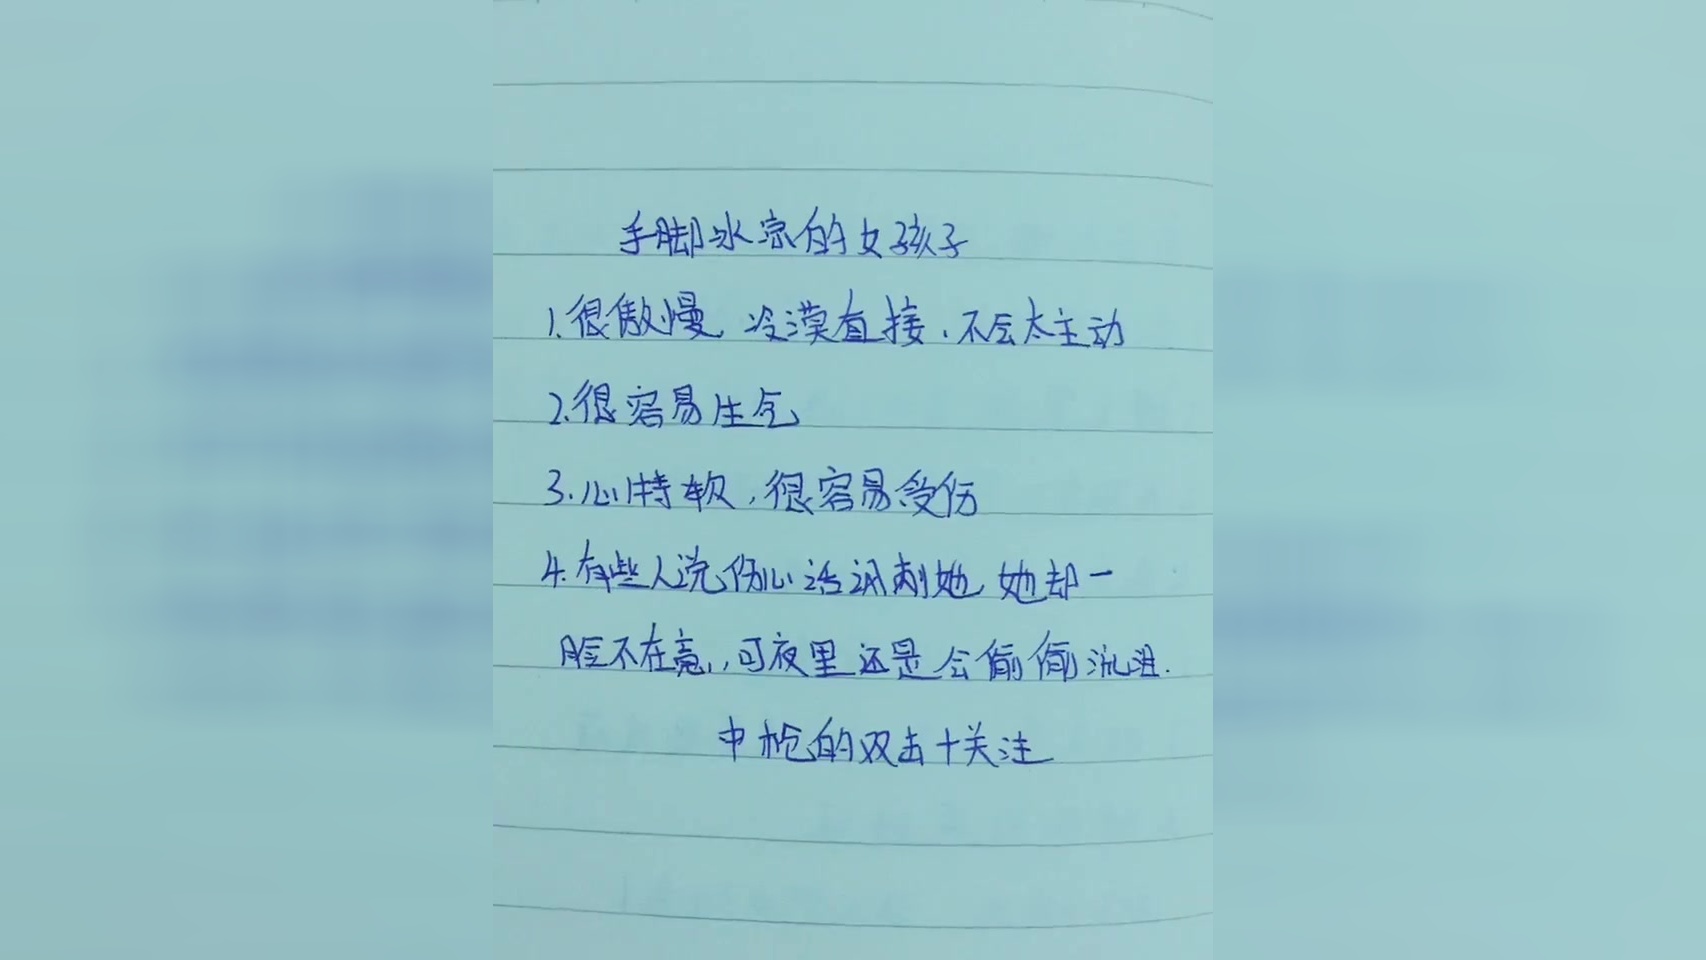 手脚冰凉的女孩子
1.很傲慢 冷漠直接,不会太主动
2.很容易生气
3.心特软,很容易受伤
4.有些人说伤心话讽刺她 她却一
脸不在意,可夜里还是会偷偷流泪.
中枪的双击十关注